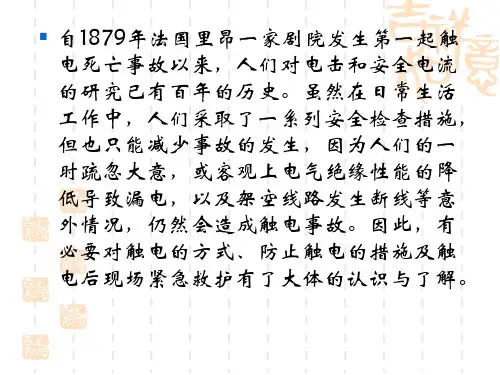 自1879年法国里昂一家剧院发生第一起触
电死亡事故以来，人们对电击和安全电流
的研究已有百年的历史。虽然在日常生活
工作中，人们采取了一系列安全检查措施，
但也只能减少事故的发生，因为人们的一
时疏忽大意，或客观上电气绝缘性能的降
低导致漏电，以及架空线路发生断线等意
外情况，仍然会造成触电事故。因此，有
必要对触电的方式、防止触电的措施及触
电后现场紧急救护有了大体的认识与了解。